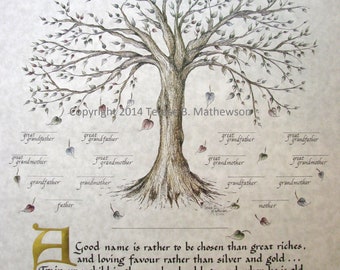 Copyright 2014 Terese B. Mathewson
great grandfather great grandfather great grandfather great grandfather
great grandmother great grandmother great grandmother great grandmother
grandfather grandmother grandfather grandmother
father mother
A Good name is rather to be chosen than great riches,
and loving favour rather than silver and gold...